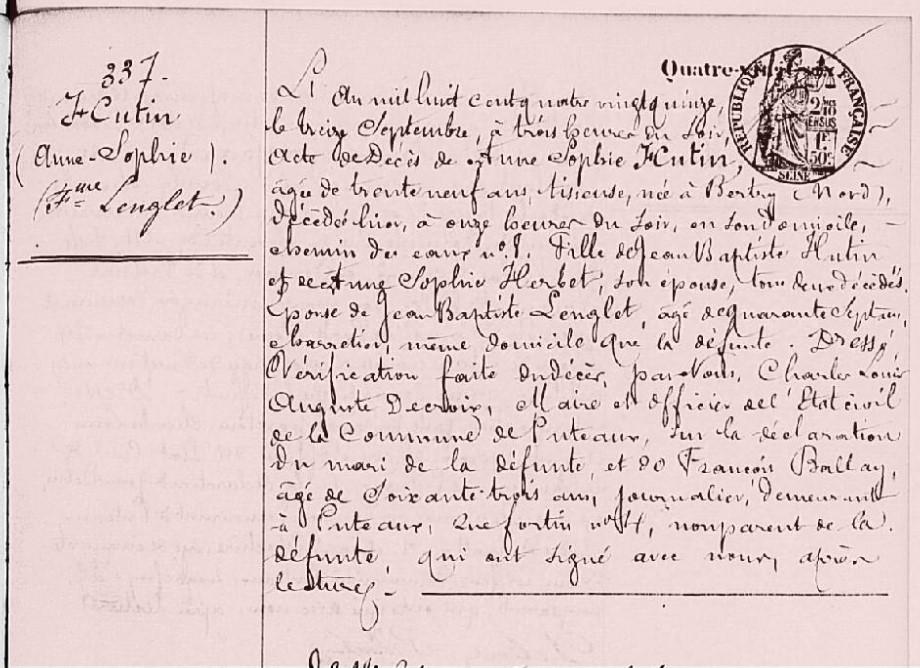 337.
Hutin
(Anne-Sophie).
(Fme Lenglet.)
Quatre-vingt-six
RÉPUBLIQUE FRANÇAISE
SEINE
L'An mil huit cent quatre vingt quinze,
le treize Septembre, à trois heures du Soir,
Acte de Décès de Anne Sophie Hutin,
âgée de trente neuf ans, tisseuse, née à Bertry (Nord),
décédée hier, à onze heures du Soir, en son domicile,
chemin des eaux n°1. Fille de Jean Baptiste Hutin
et de Anne Sophie Herbet, son épouse, tous deux décédés.
Epouse de Jean Baptiste Lenglet âgé de quarante Sept ans,
charretier, même domicile que la défunte. Dressé,
Vérification faite du décès, par Nous, Charles Louis
Auguste Decroix, Maire et officier de l'Etat civil
de la Commune de Puteaux, Sur la déclaration
du mari de la défunte et de François Ballay,
âgé de Soixante trois ans, journalier, demeurant
à Puteaux, Rue fortin, non parent de la
défunte qui ont signé avec nous, après
lecture.